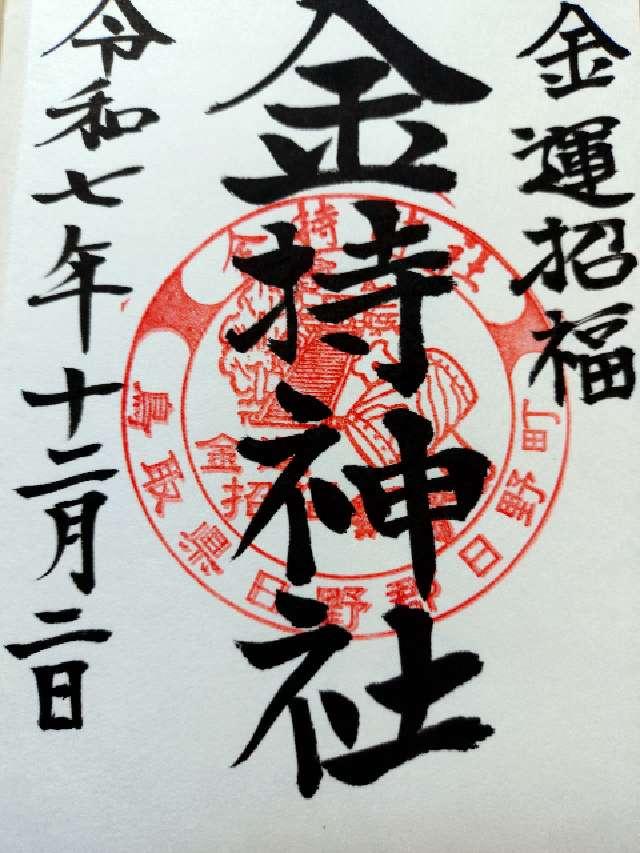 金運招福
金持神社
令和七年十二月二日
鳥取県日野郡日野町